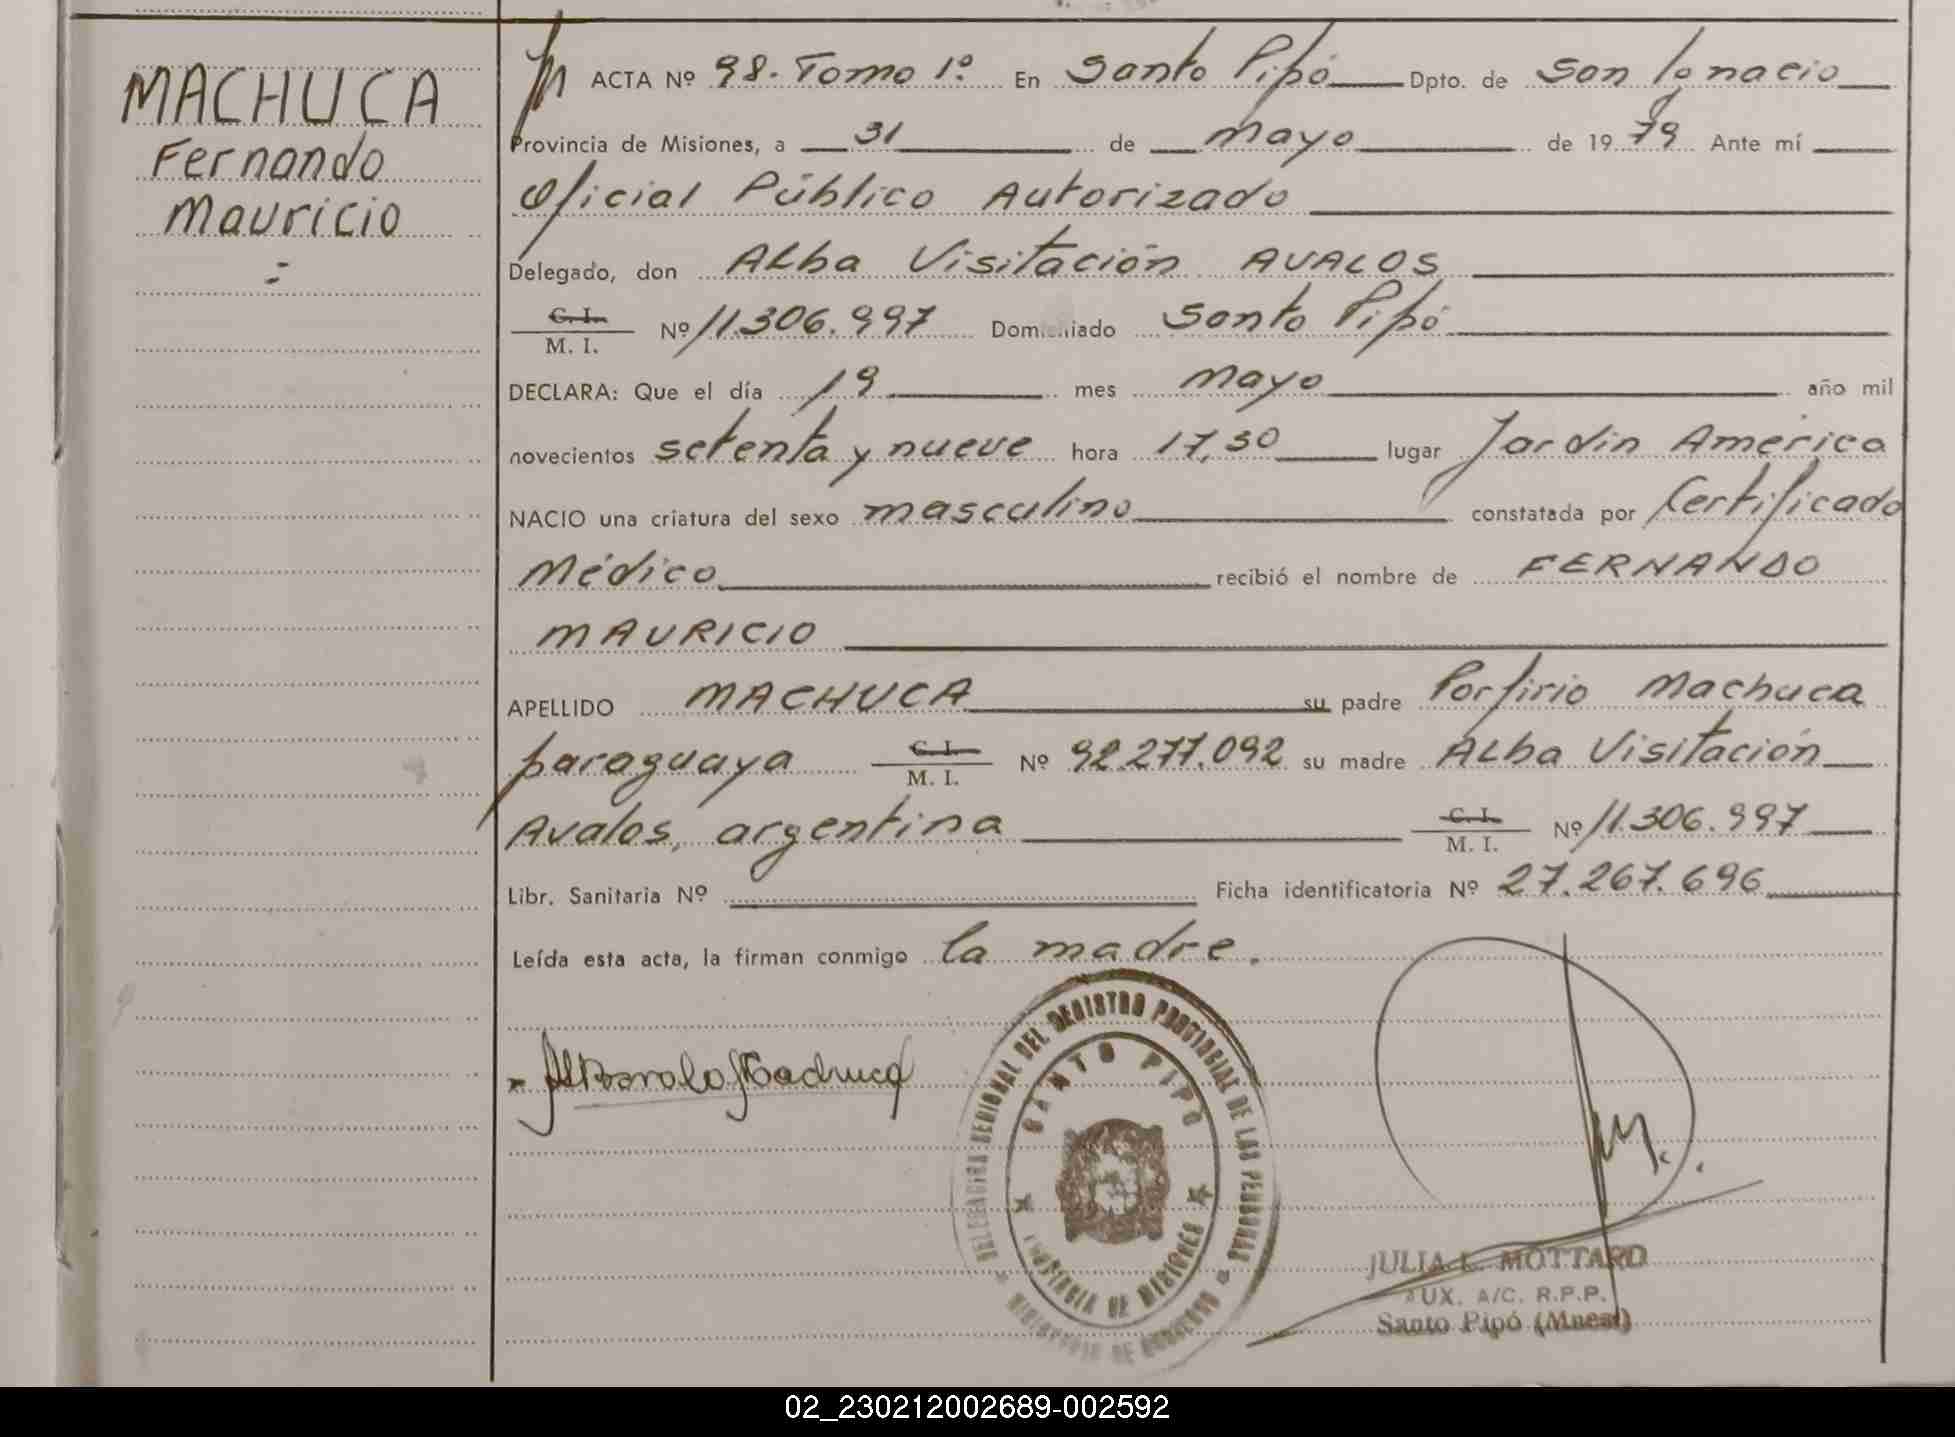 MACHUCA
Fernando
Mauricio
ACTA Nº 98. Tomo 1º. En Santo Pipó Dpto. de San Ignacio
Provincia de Misiones, a 31 de mayo de 1979 Ante mí
Oficial Público Autorizado
Delegado, don Alba Visitación AVALOS
C. I.
M. I. Nº 11.306.997 Domiciliado Santo Pipó
DECLARA: Que el día 19 mes mayo año mil
novecientos setenta y nueve hora 17,30 lugar Jardín América
NACIO una criatura del sexo masculino constatada por Certificado
Médico recibió el nombre de FERNANDO
MAURICIO
APELLIDO MACHUCA su padre Porfirio Machuca
paraguaya C. I.
M. I. Nº 92.277.092 su madre Alba Visitación
Avalos, argentina C. I.
M. I. Nº 11.306.997
Libr. Sanitaria Nº Ficha identificatoria Nº 27.267.696
Leída esta acta, la firman conmigo la madre.
DELEGACION REGIONAL DEL REGISTRO PROVINCIAL DE LAS PERSONAS
SANTO PIPO
PROVINCIA DE MISIONES
MINISTERIO DE GOBIERNO
JULIA L. MOTTARD
AUX. A/C. R.P.P.
Santo Pipó (Mnes)
02_230212002689-002592